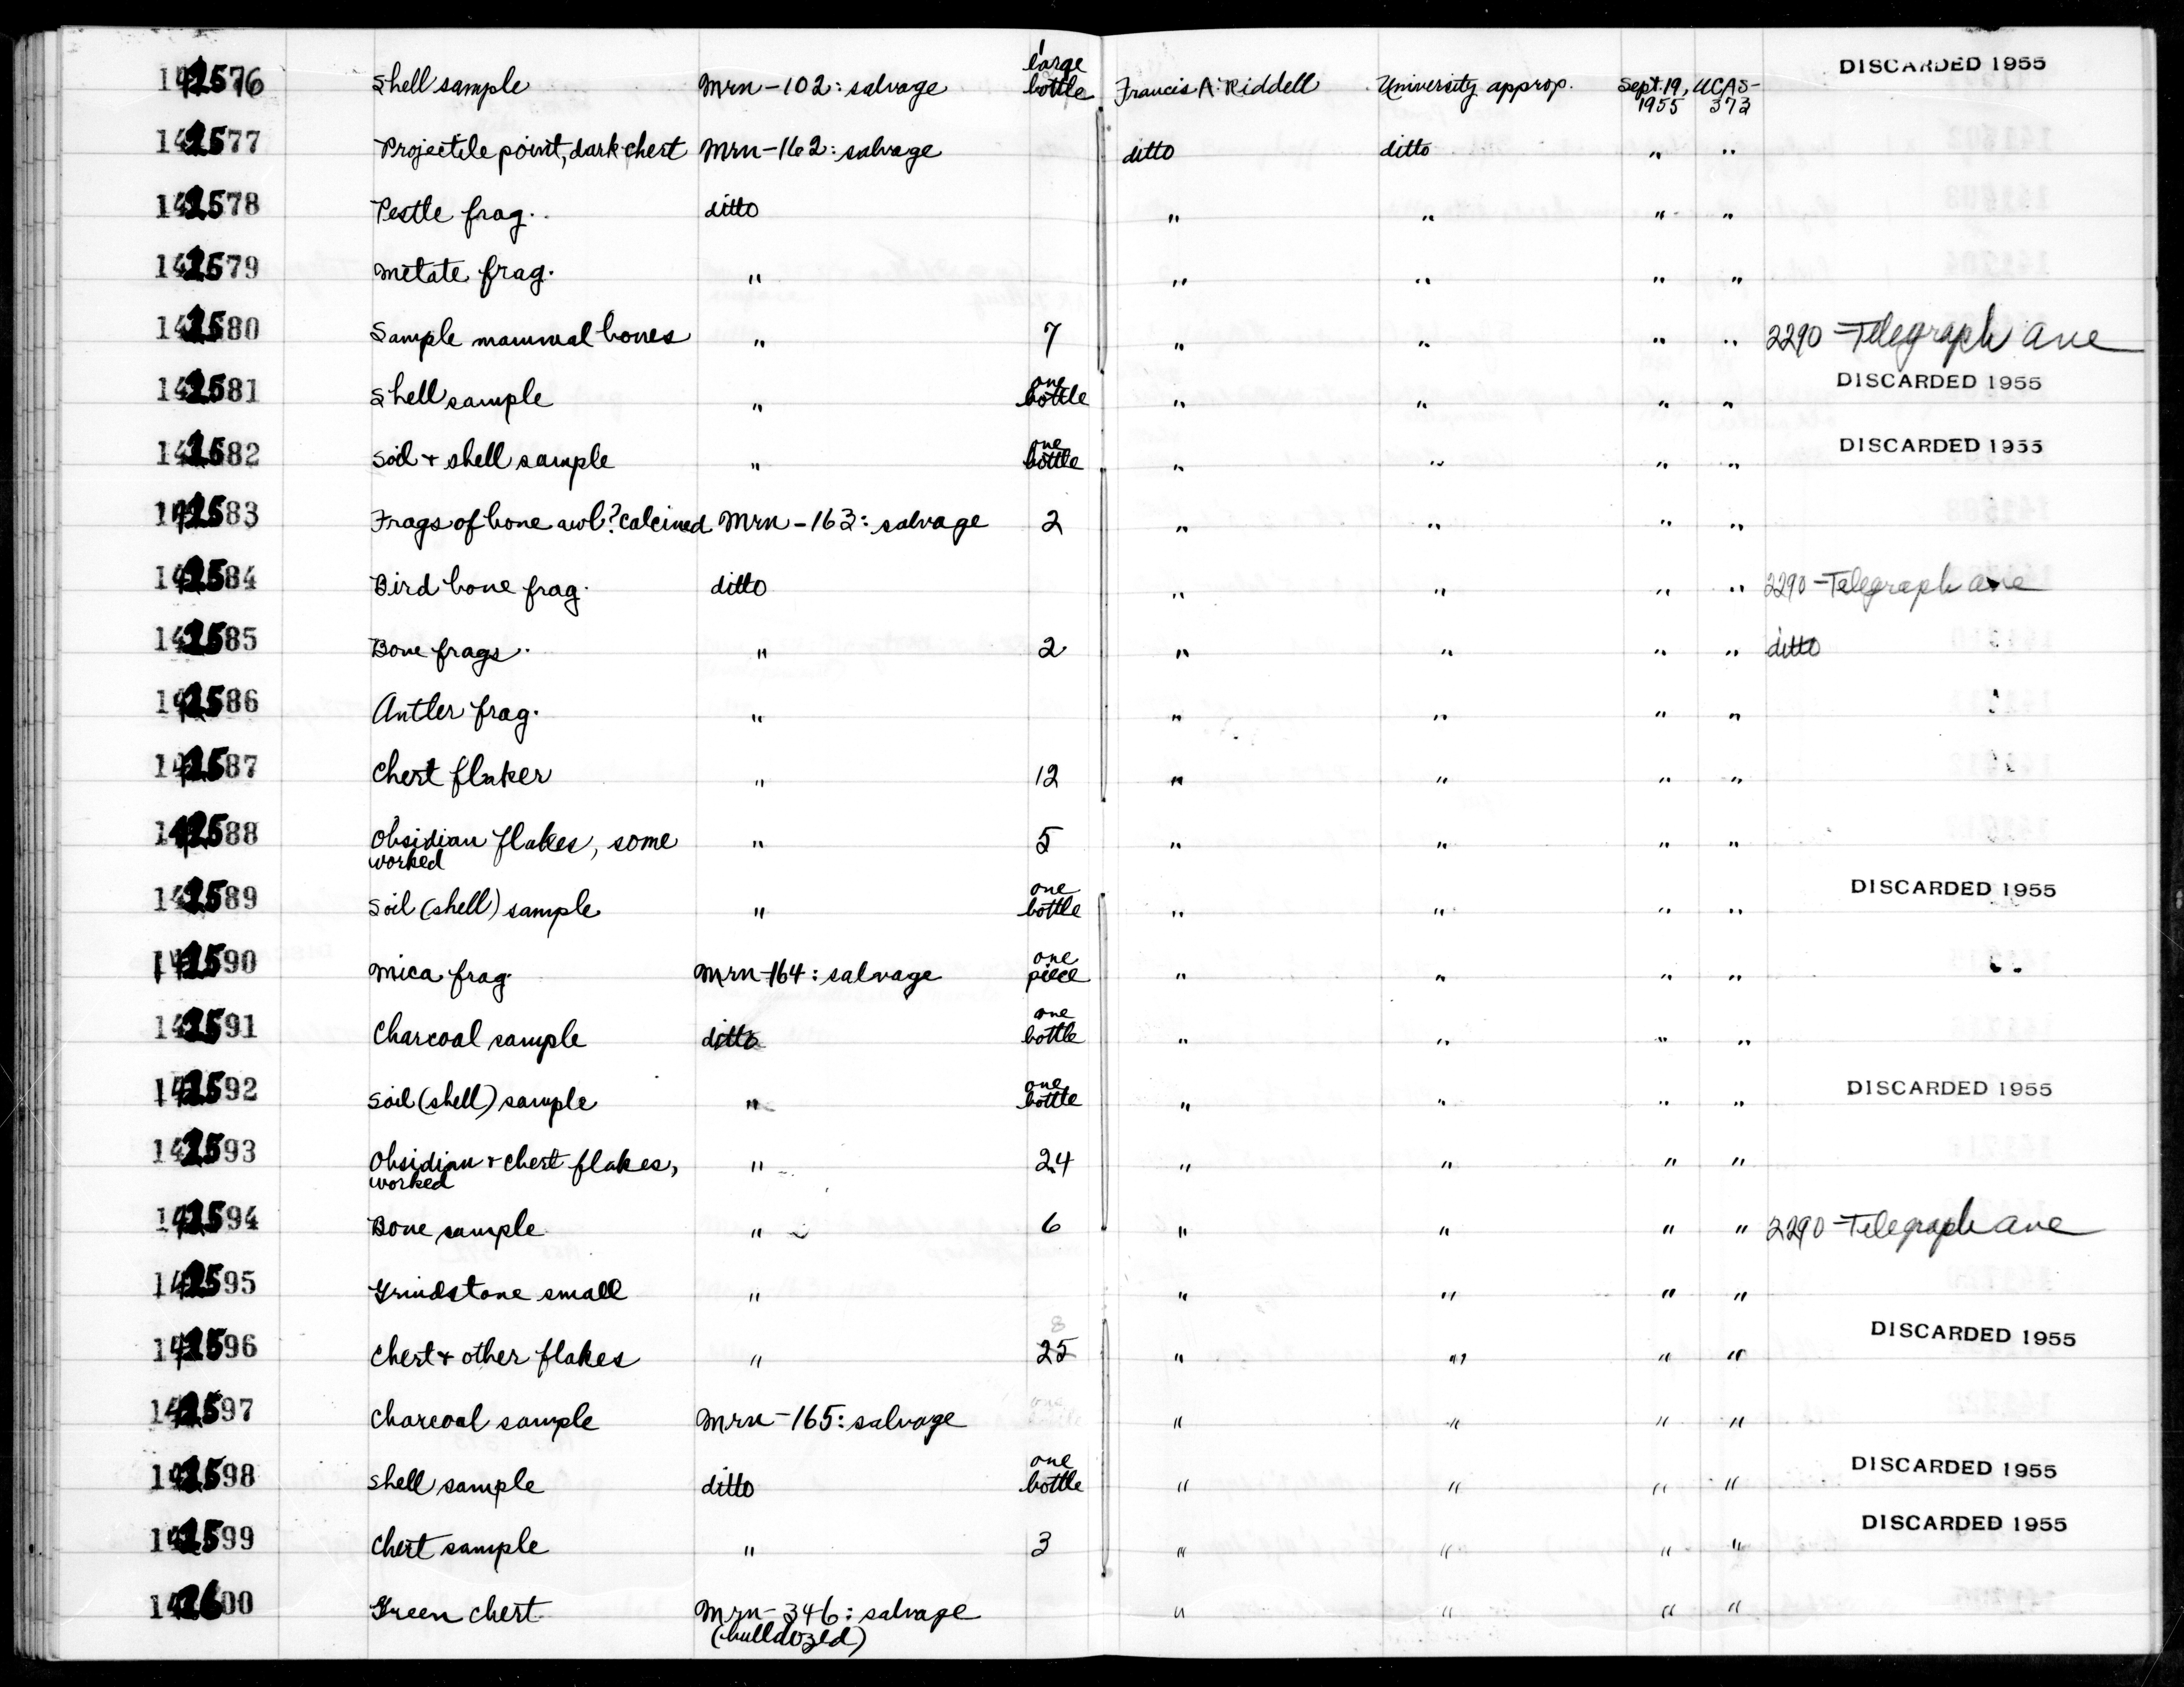 142576 Shell sample Mrn-102: salvage 1 large bottle Francis A. Riddell University approp. Sept. 19, 1955 UCAS-373 DISCARDED 1955
142577 Projectile point, dark chert Mrn-162: salvage ditto ditto " "
142578 Pestle frag. ditto " " " "
142579 Metate frag. " " " " "
142580 Sample mammal bones " 7 " " " " 2290-Telegraph Ave
142581 Shell sample " one bottle " " " " DISCARDED 1955
142582 Soil + shell sample " one bottle " " " " DISCARDED 1955
142583 Frags of bone awl? calcined Mrn-163: salvage 2 " " " "
142584 Bird bone frag. ditto " " " " 2290-Telegraph Ave
142585 Bone frags. " 2 " " " " ditto
142586 Antler frag. " " " " "
142587 Chert flaker " 12 " " " "
142588 Obsidian flakes, some " 5 " " " "
worked
142589 Soil (shell) sample " one bottle " " " " DISCARDED 1955
142590 Mica frag. Mrn-164: salvage one piece " " " "
142591 Charcoal sample ditto one bottle " " " "
142592 Soil (shell) sample " one bottle " " " " DISCARDED 1955
142593 Obsidian + chert flakes, " 24 " " " "
worked
142594 Bone sample " 6 " " " " 2290-Telegraph Ave
142595 Grindstone small " " " " "
142596 Chert + other flakes " 8 25 " " " " DISCARDED 1955
142597 Charcoal sample Mrn-165: salvage " " " "
142598 Shell sample ditto one bottle " " " " DISCARDED 1955
142599 Chert sample " 3 " " " " DISCARDED 1955
142600 Green chert Mrn-346: salvage " " " "
(bulldozed)